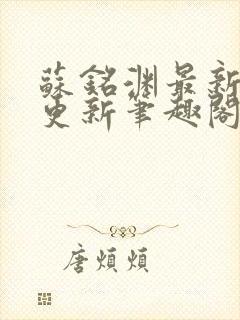 蘇銘淵最新
更新筆趣閣
唐煩煩